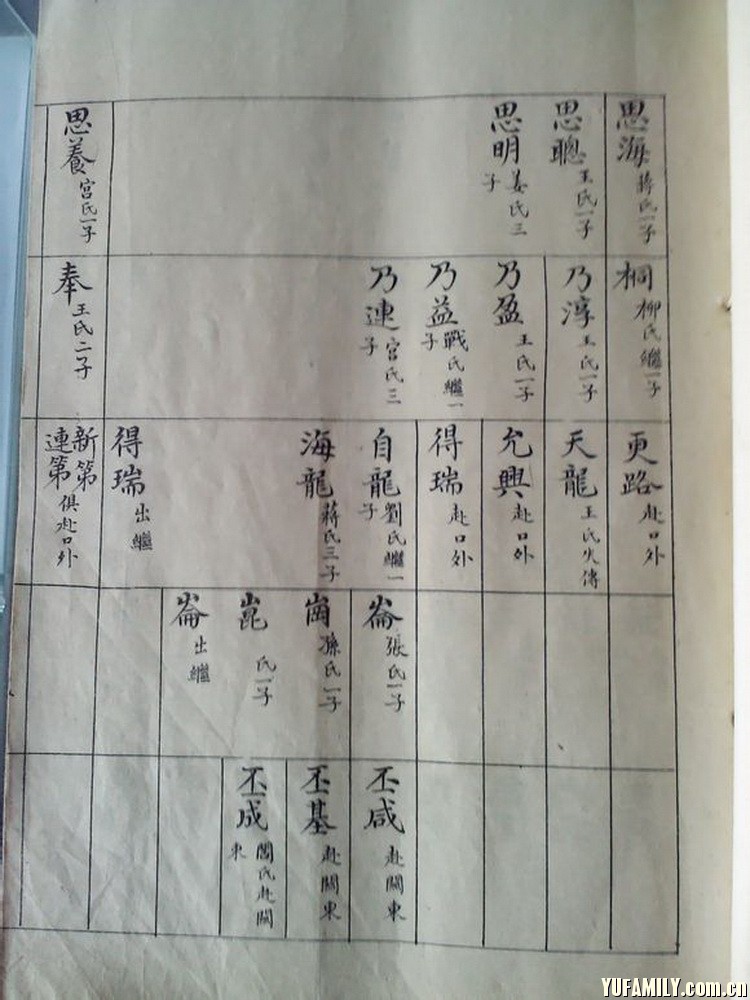 思海 蔣氏一子
思聰 王氏一子
思明 姜氏三子
思養 宮氏一子
桐 柳氏繼一子
乃淳 王氏一子
乃盈 王氏一子
乃益 戰氏繼一子
乃連 宮氏三子
奉 王氏二子
更路 赴口外
天龍 王氏失傳
允興 赴口外
得瑞 赴口外
自龍 劉氏繼一子
海龍 蔣氏三子
得瑞 出繼
新第
連第 俱赴口外
崙 張氏一子
崗 孫氏一子
崑 氏一子
崙 出繼
丕咸 赴關東
丕基 赴關東
丕成 閻氏赴關東
YUFAMILY.com.cn